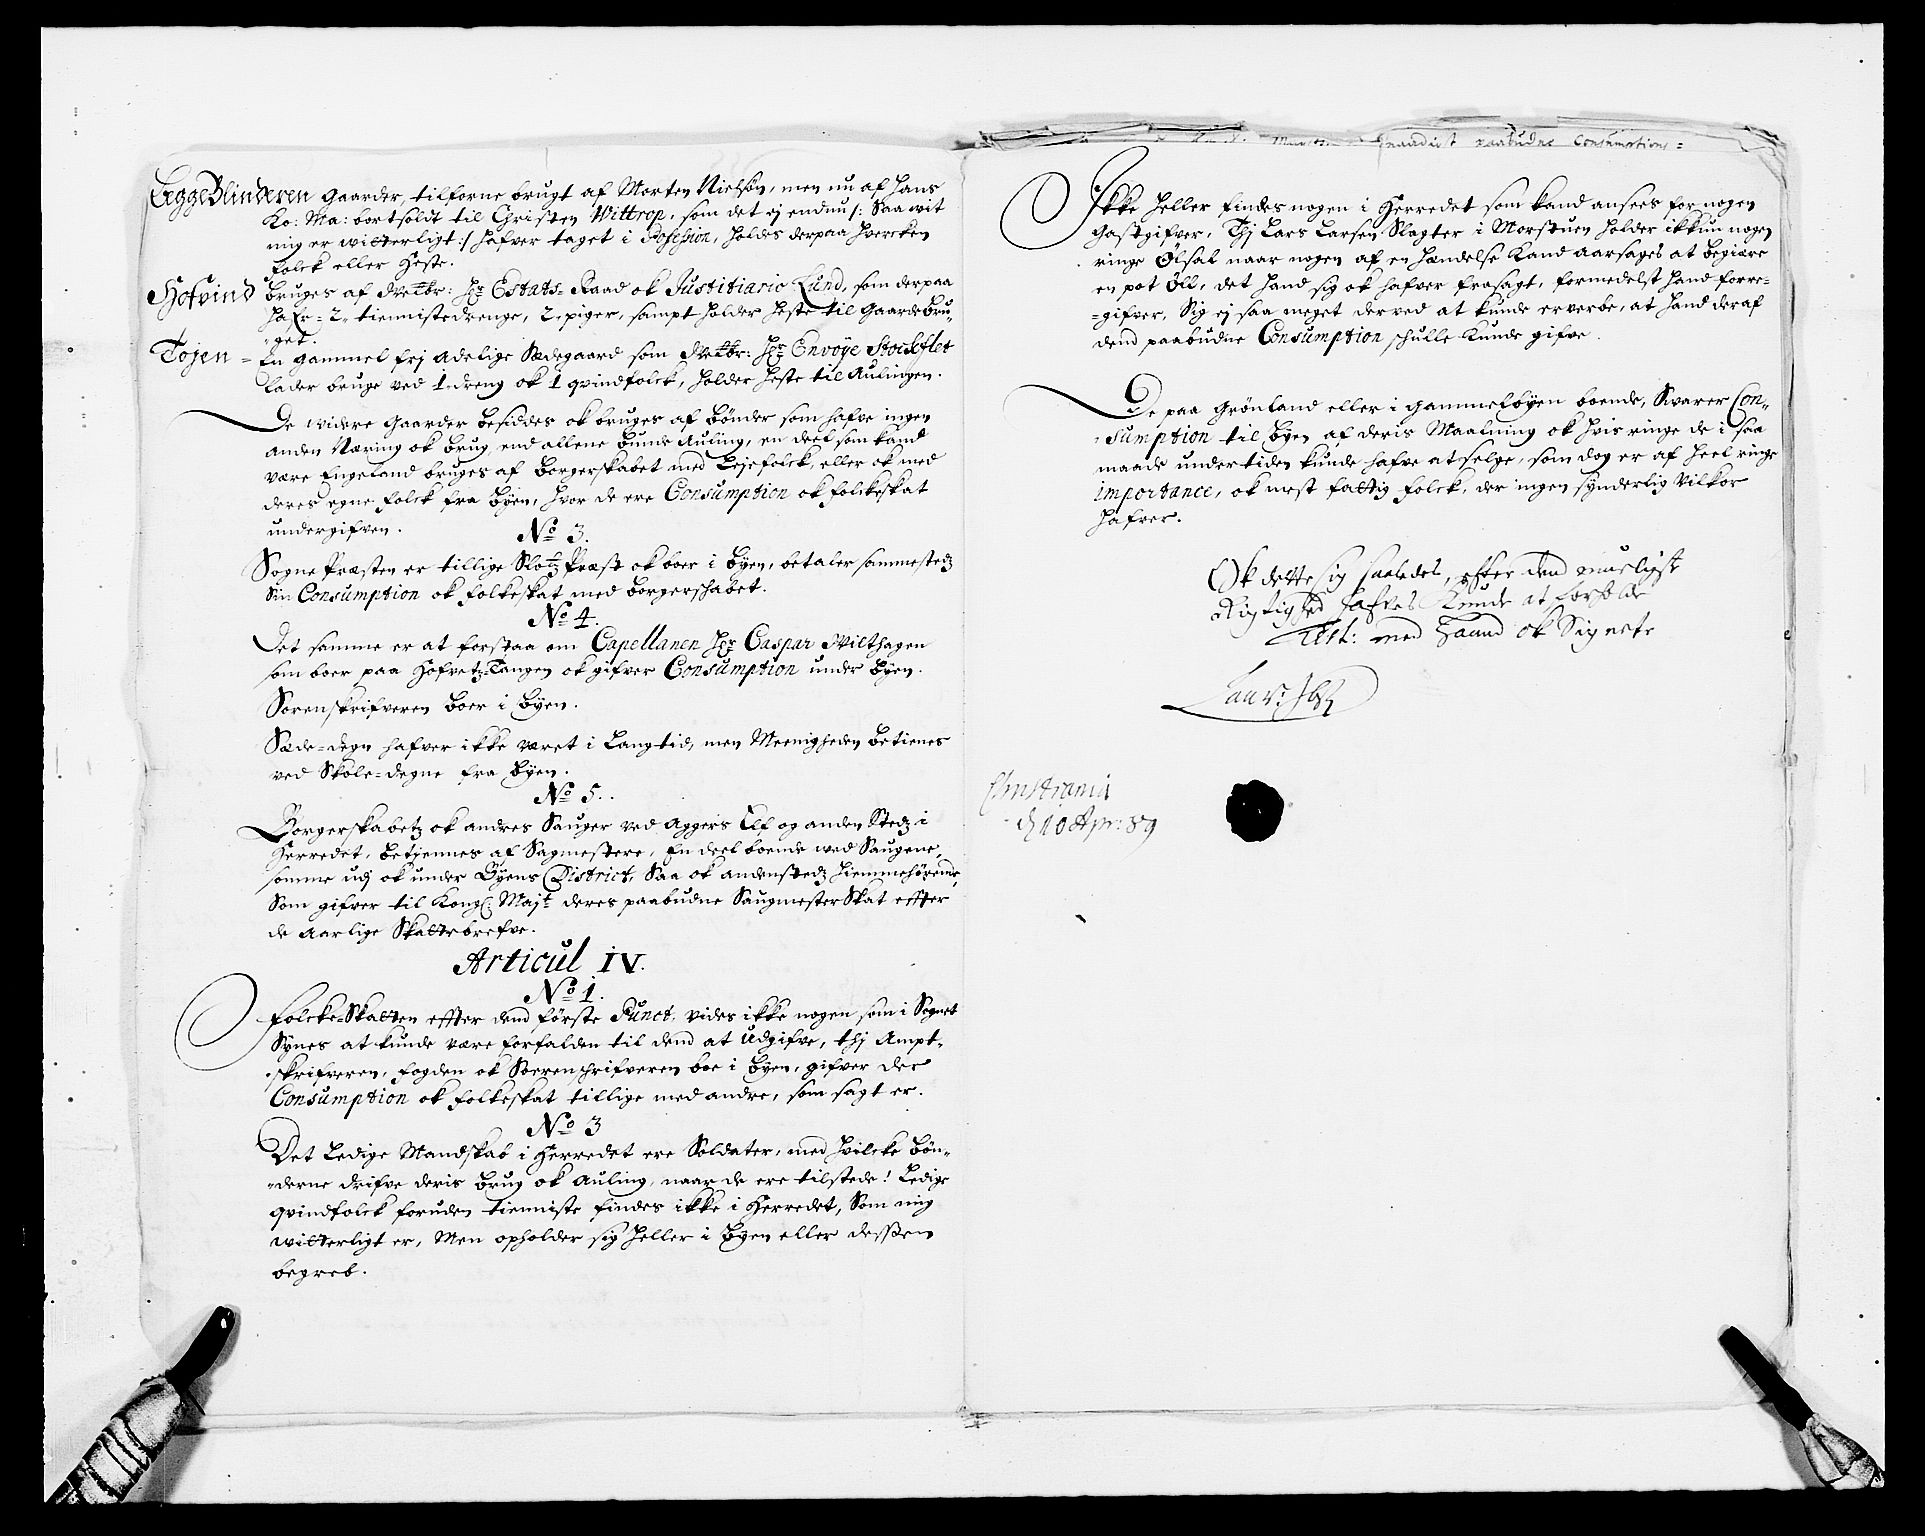 EggeBlinderen gaarder, tilforne brugt af Morten Nielsøn, men nu af Hans
Ko: Ma: bortsoldt til Christen Wittrop, som det ej endnu /: Saa wit
mig er witterligt :/ hafver taget i Possession, holdes derpaa hvercken
folck eller Heste.
Hofvind bruges af Velbr: Hr Estats=Raad ok Justitiario Lund, som derpaa
hafr = 2 tiennistedrenge, 2 piger, sampt holder heste til Gaarde bru-
get.
Tojen = En gammel frj Adelige Sædegaard som Velbr: Hr Envoÿe Stockflet
lader bruge ved 1 dreng ok 1 qvindfolck, holder heste til Aulingen.
De widere Gaarder besiddes ok bruges af bønder som hafve ingen
anden Næring ok brug, end allene bunde Auling, en deel som kand
være Engeland bruges af borgerskabet med Lejefolck, eller ok med
deres egne folck fra byen, hvor de ere Consumption ok folckeskat
undergifven.
No 3.
Sogne Præsten er tillige Slotz Præst ok boer i byen, betaler sammestedz
Sin Consumption ok folkeskat med borgerschabet.
No 4.
Det samme er at forstaa om Capellanen Hr Caspar Wilthagen
som boer paa Hofvetz=Tangen ok gifver Consumption under byen.
Sorenskrifveren boer i byen.
Sæde=degn hafver ikke været i Lang tid, men Meenigheden betienes
ved Skole=degne fra byen.
No 5.
Borgerskabetz ok andres Sauger ved Aggers Elf og anden Stedz i
Herredet, betjennes af Sagmestere, En deel boende wed Saugene,
somme udj ok under Byens District, Saa ok andenstedz hiemmehørende,
Som gifver til Kongl: Majt deres paabudne SaugmesterSkat effter
de Aarlige Skattebrefve.
Articul IV.
No 1.
Folcke=Skatten effter dend første Punct, vides ikke nogen som i Sognet
Synes at kunde være forfalden til dend at Udgifve, thj Ampt-
skrifveren, fogden ok Sorenschrifveren boe i byen, gifver der
Consumption ok folkeskat tillige med andre, som sagt er.
No 3
Det Ledige Mandskab i Herredet ere Soldater, med hvilcke bøn-
derne drifve deris brug ok Auling, naar de ere tilstede! Ledige
qvindfolck foruden tienniste findes ikke i Herredet, Som mig
witterligt er, Men opholder sig heller i byen eller dessen
begreb.
naadigst paabudne Consumptions=
Ikke heller findes nogen i Herredet som kand ansees for nogen
gastgifver, Thj Lars Larsen Slagter i Norstuen holder ikkun nogen
ringe Ølsal naar nogen af en hændelse kand aarsages at begiære
en pot Øll, det hand sig ok hafver frasagt, formedelst hand forre-
gifver, Sig ej saa meget derved at kunde erverbe, at hand deraf
dend paabudne Consumption schulle kunde gifve.
De paa Grønland eller i gammelbyen boende, Svarer Con-
sumption til byen af deris Maalning ok hvis ringe de i saa
maade undertiden kunde hafve at selge, som dog er af heel ringe
importance, ok mest fattig folck, der ingen synderlig Vilkor
hafver.
Ok dette sig saaledes, effter dend mueligste
Rigtighed hafves kunde at forholde
Test: med Haand ok Signete
Laur:
Christiania
d 10 Apr: 89